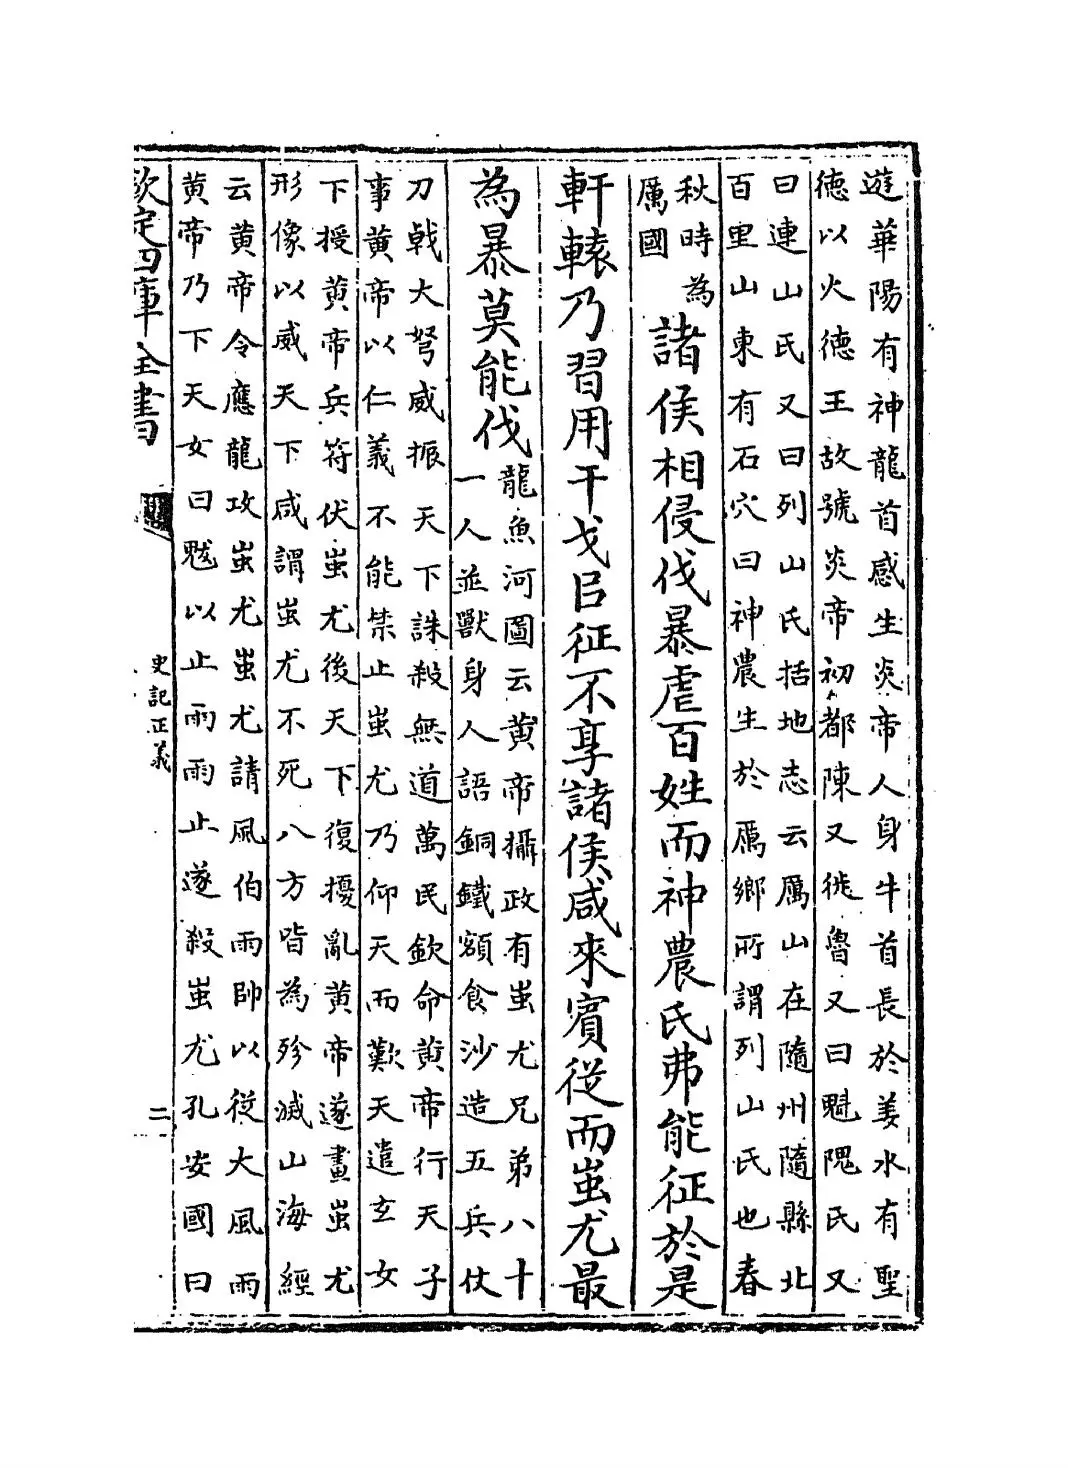 遊華陽有神龍首感生炎帝人身牛首長於姜水有聖
德以火德王故號炎帝初都陳又徙魯又曰魁隗氏又
曰連山氏又曰列山氏括地志云厲山在隨州隨縣北
百里山東有石穴曰神農生於厲鄉所謂列山氏也春
秋時為
厲國
諸侯相侵伐暴虐百姓而神農氏弗能征於是
軒轅乃習用干戈㠯征不享諸侯咸來賓從而蚩尤最
為暴莫能伐
龍魚河圖云黄帝攝政有蚩尤兄弟八十
一人並獸身人語銅鐵額食沙造五兵仗
刀戟大弩威振天下誅殺無道萬民欽命黄帝行天子
事黄帝以仁義不能禁止蚩尤乃仰天而歎天遣玄女
下授黄帝兵符伏蚩尤後天下復擾亂黄帝遂畫蚩尤
形像以威天下咸謂蚩尤不死八方皆為殄滅山海經
云黄帝令應龍攻蚩尤蚩尤請風伯雨帥以從大風雨
黄帝乃下天女曰魃以止雨雨止遂殺蚩尤孔安國曰
欽定四庫全書
史記正義
二